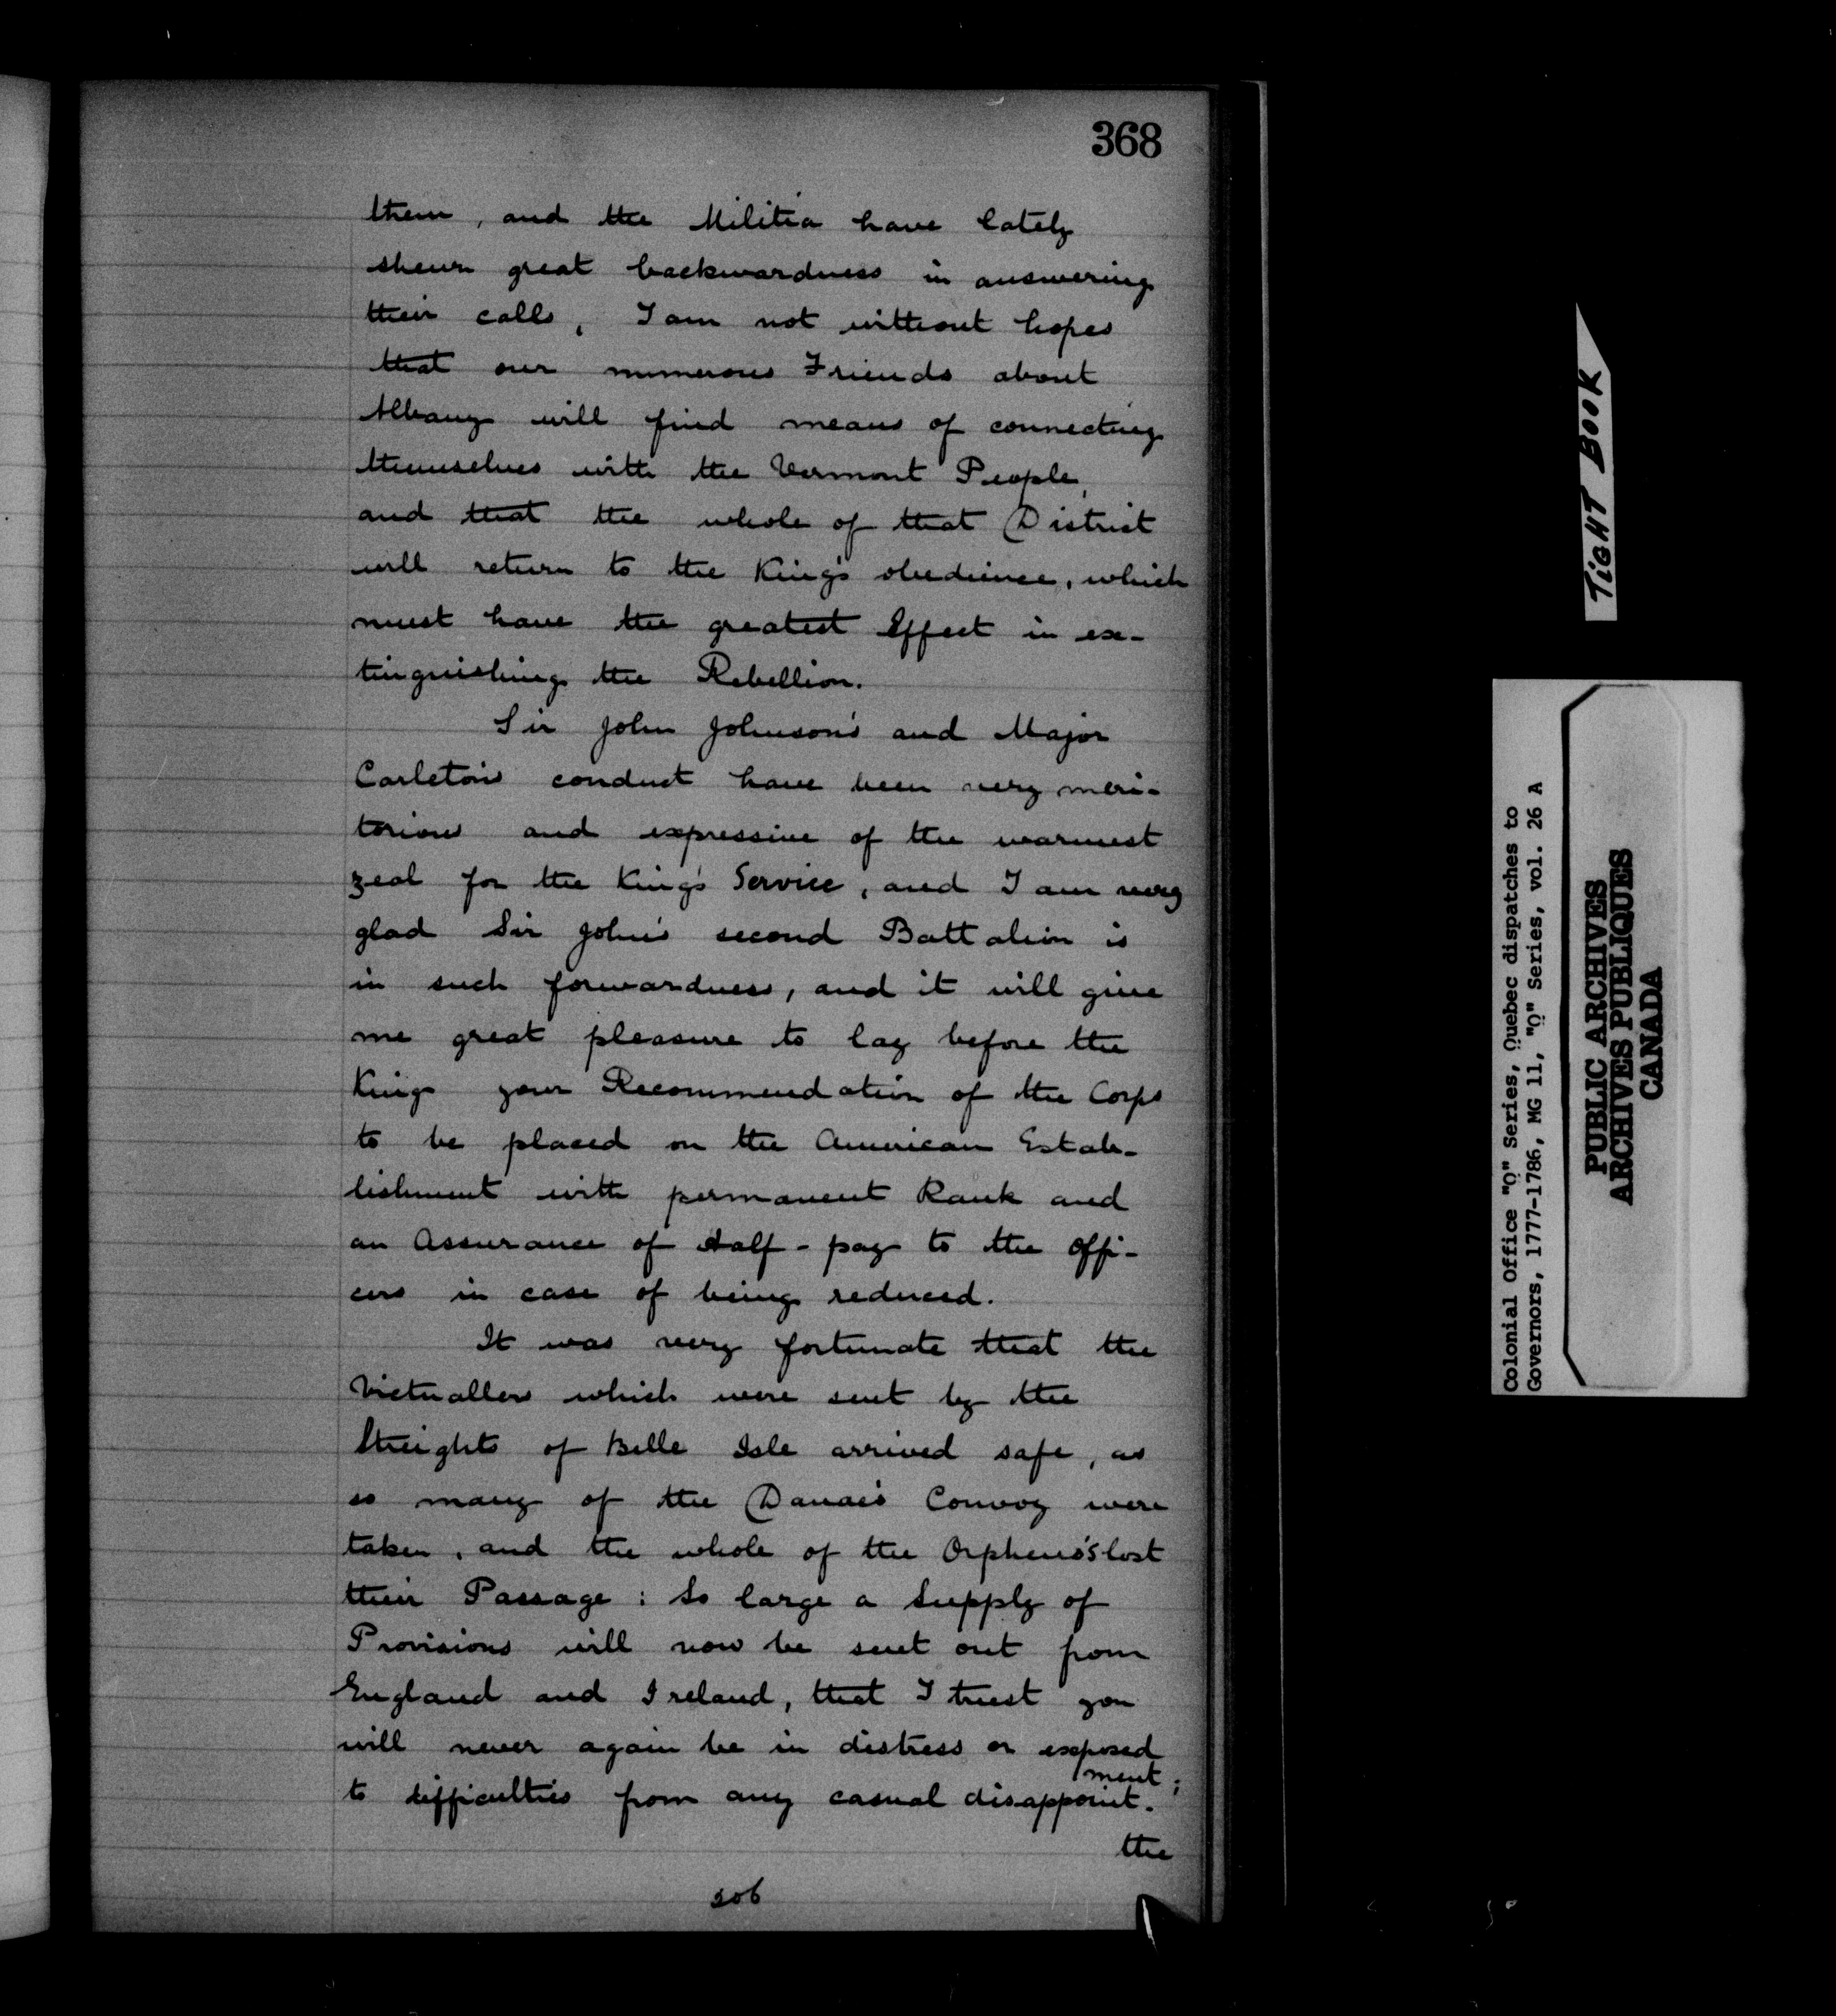 368
them, and the Militia have lately
shewn great backwardness in answering
their calls, I am not without hopes
that our numerous Friends about
Albany will find means of connecting
themselves with the Vermont People,
and that the whole of that District
will return to the King's obedience, which
must have the greatest Effect in ex-
tinguishing the Rebellion.
Sir John Johnson's and Major
Carleton's conduct have been very meri-
torious and expressive of the warmest
zeal for the King's Service, and I am very
glad Sir John's second Battalion is
in such forwardness, and it will give
me great pleasure to lay before the
King your Recommendation of the Corps
to be placed on the American Estab-
lishment with permanent Rank and
an Assurance of Half-pay to the Offi-
cers in case of being reduced.
It was very fortunate that the
Victuallers which were sent by the
Streights of Belle Isle arrived safe, as
so many of the Danae's Convoy were
taken, and the whole of the Orpheus's lost
their Passage: So large a Supply of
Provisions will now be sent out from
England and Ireland, that I trust you
will never again be in distress or exposed
to difficulties from any casual disappoint-
ment;
the
206
TIGHT BOOK
Colonial Office "Q" Series, Quebec dispatches to
Governors, 1777-1786, MG 11, "Q" Series, vol. 26 A
PUBLIC ARCHIVES
ARCHIVES PUBLIQUES
CANADA